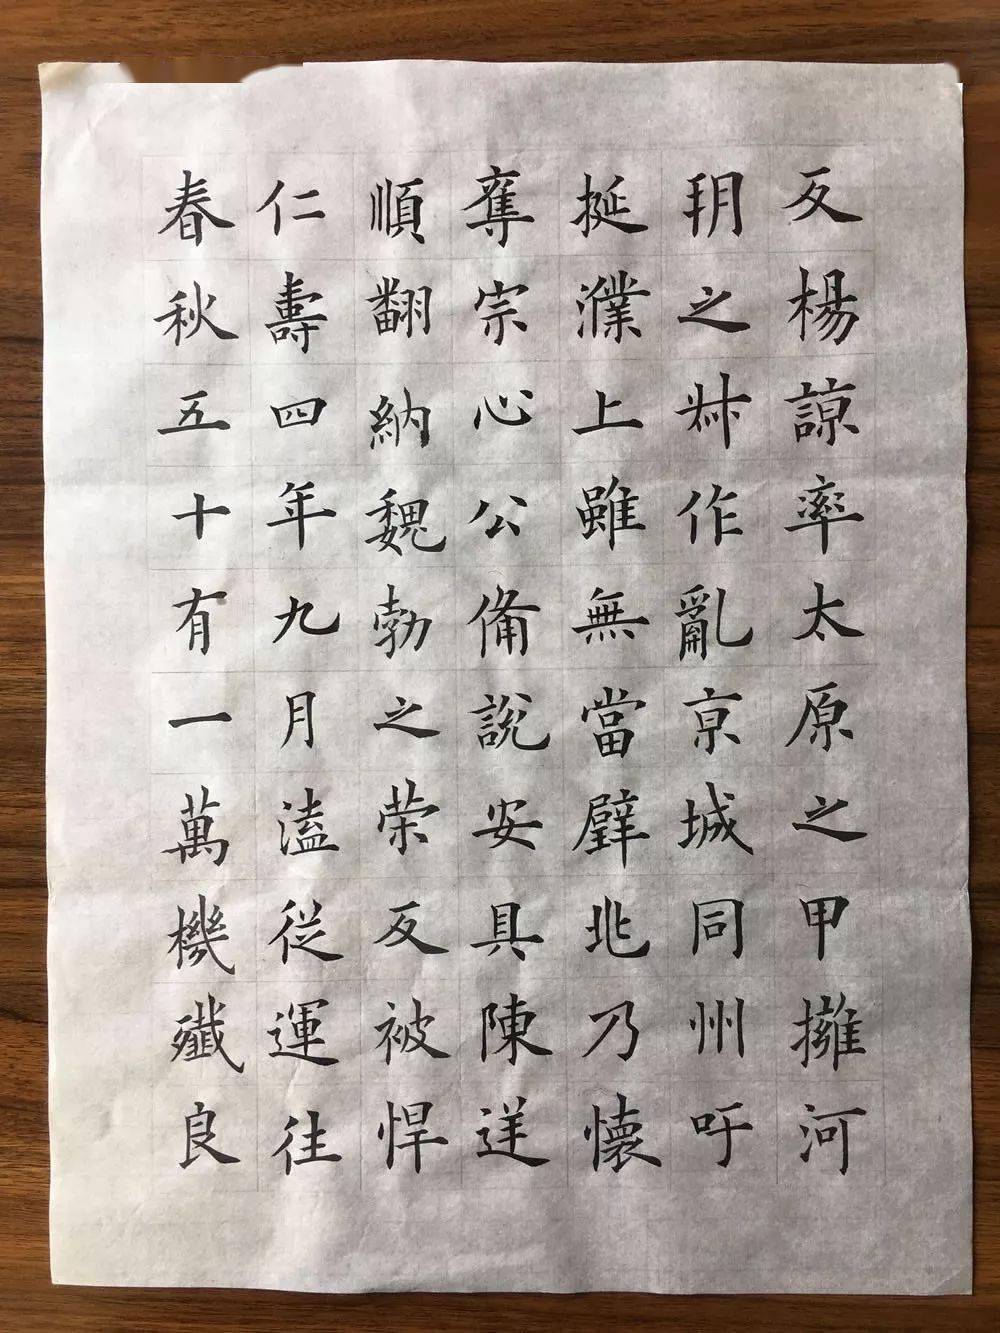 反楊諒率太原之甲擁河
朔之叛作亂京城同州吁
挺濮上雖無當璧兆乃懷
奪宗心公備說安具陳逆
順翻納魏勃之榮反被悍
仁壽四年九月溘從運往
春秋五十有一萬機殲良